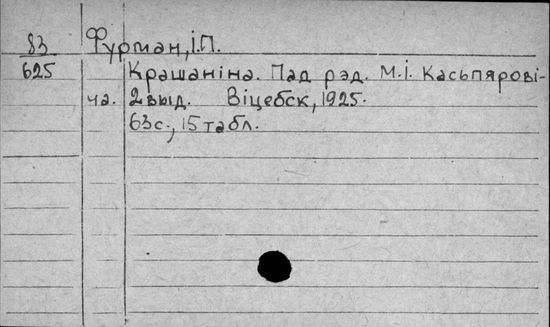 83 Фурман, І.П.
625 Крашаніна. Пад рэд. М.І. Касьпярові-
ча. 2 выд. Віцебск, 1925.
63с., 15 табл.